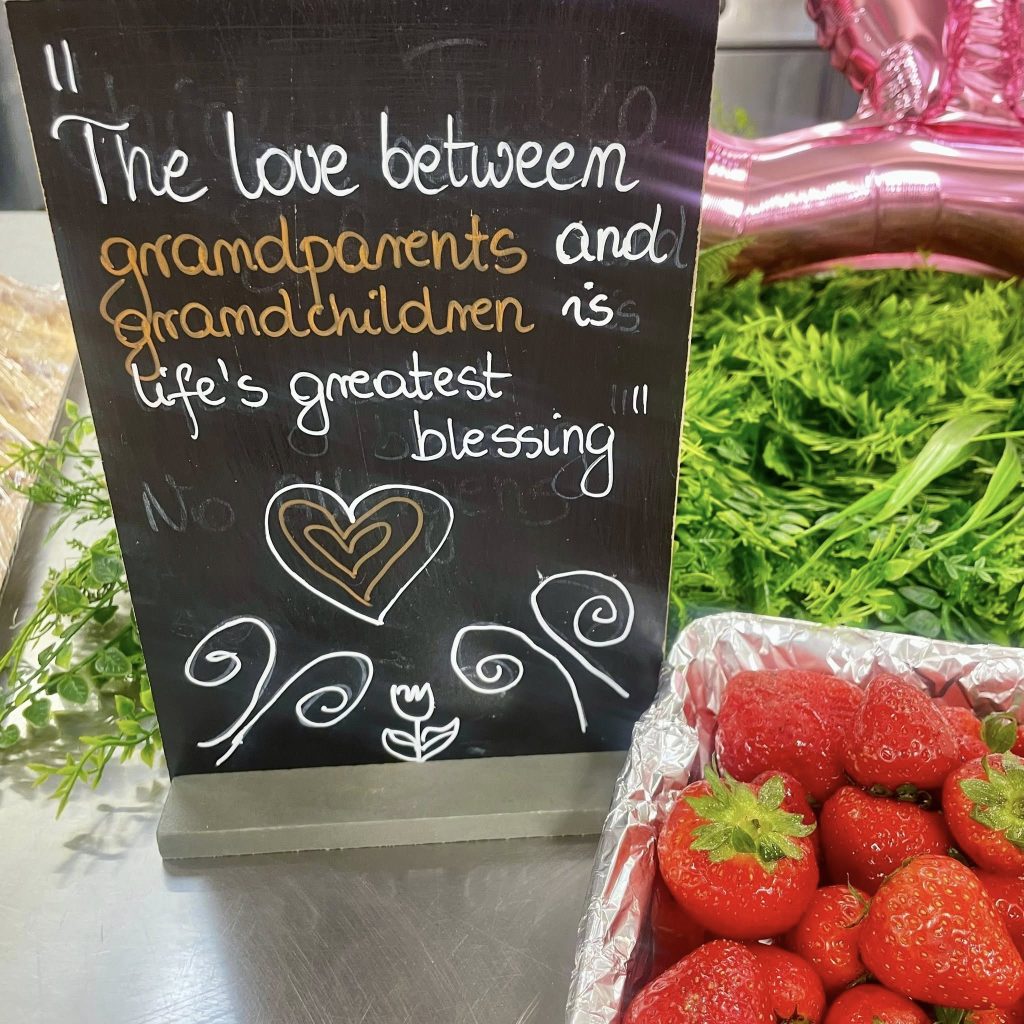 "The love between
grandparents and
grandchildren is
life's greatest
blessing"